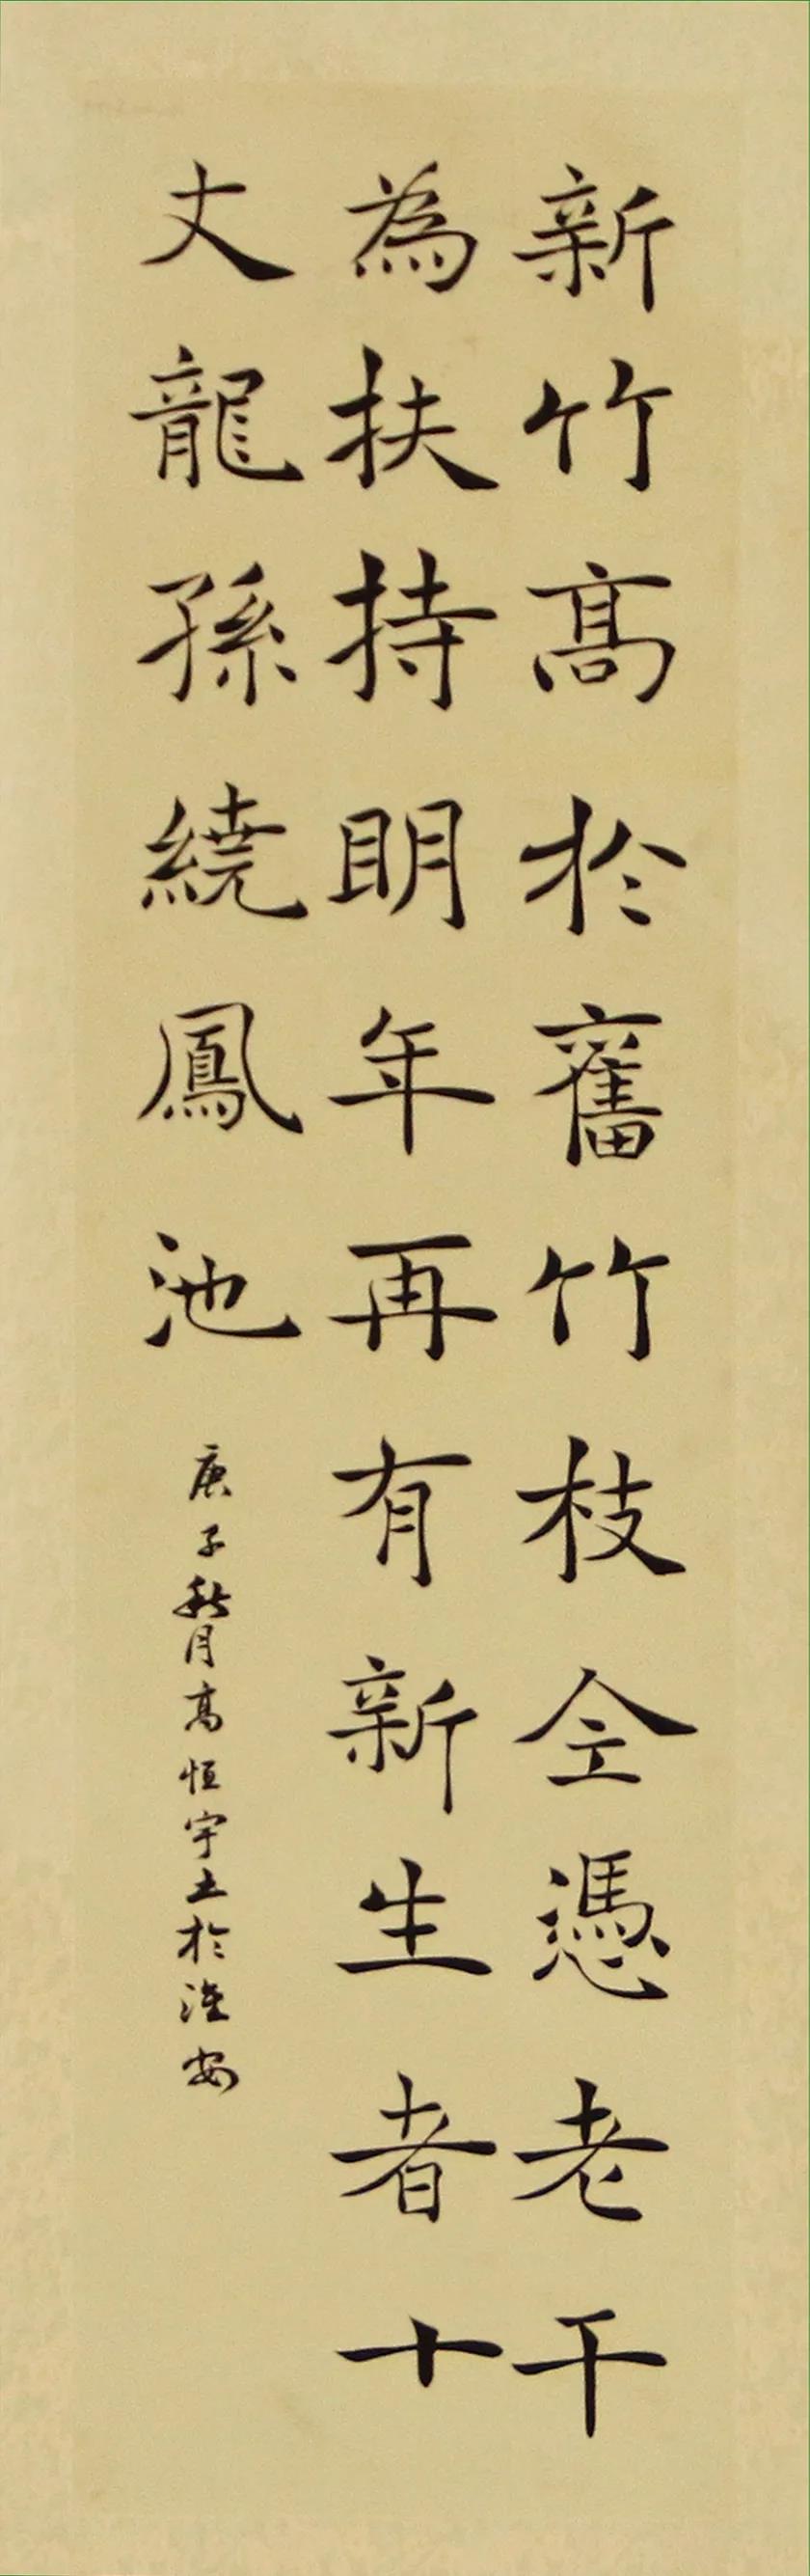 新竹高於舊竹枝全憑老干
為扶持明年再有新生者十
丈龍孫繞鳳池
庚子秋月高恒宇土於淮安